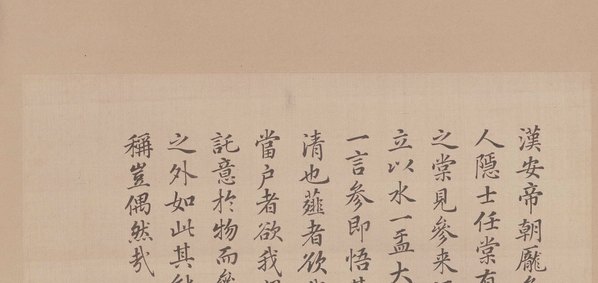 漢安帝朝龐
人隱士任棠有
之棠見參来
立以水一盂大
一言參即悟
清也薤者欲
當户者欲我
託意於物而
之外如此其
稱豈偶然哉